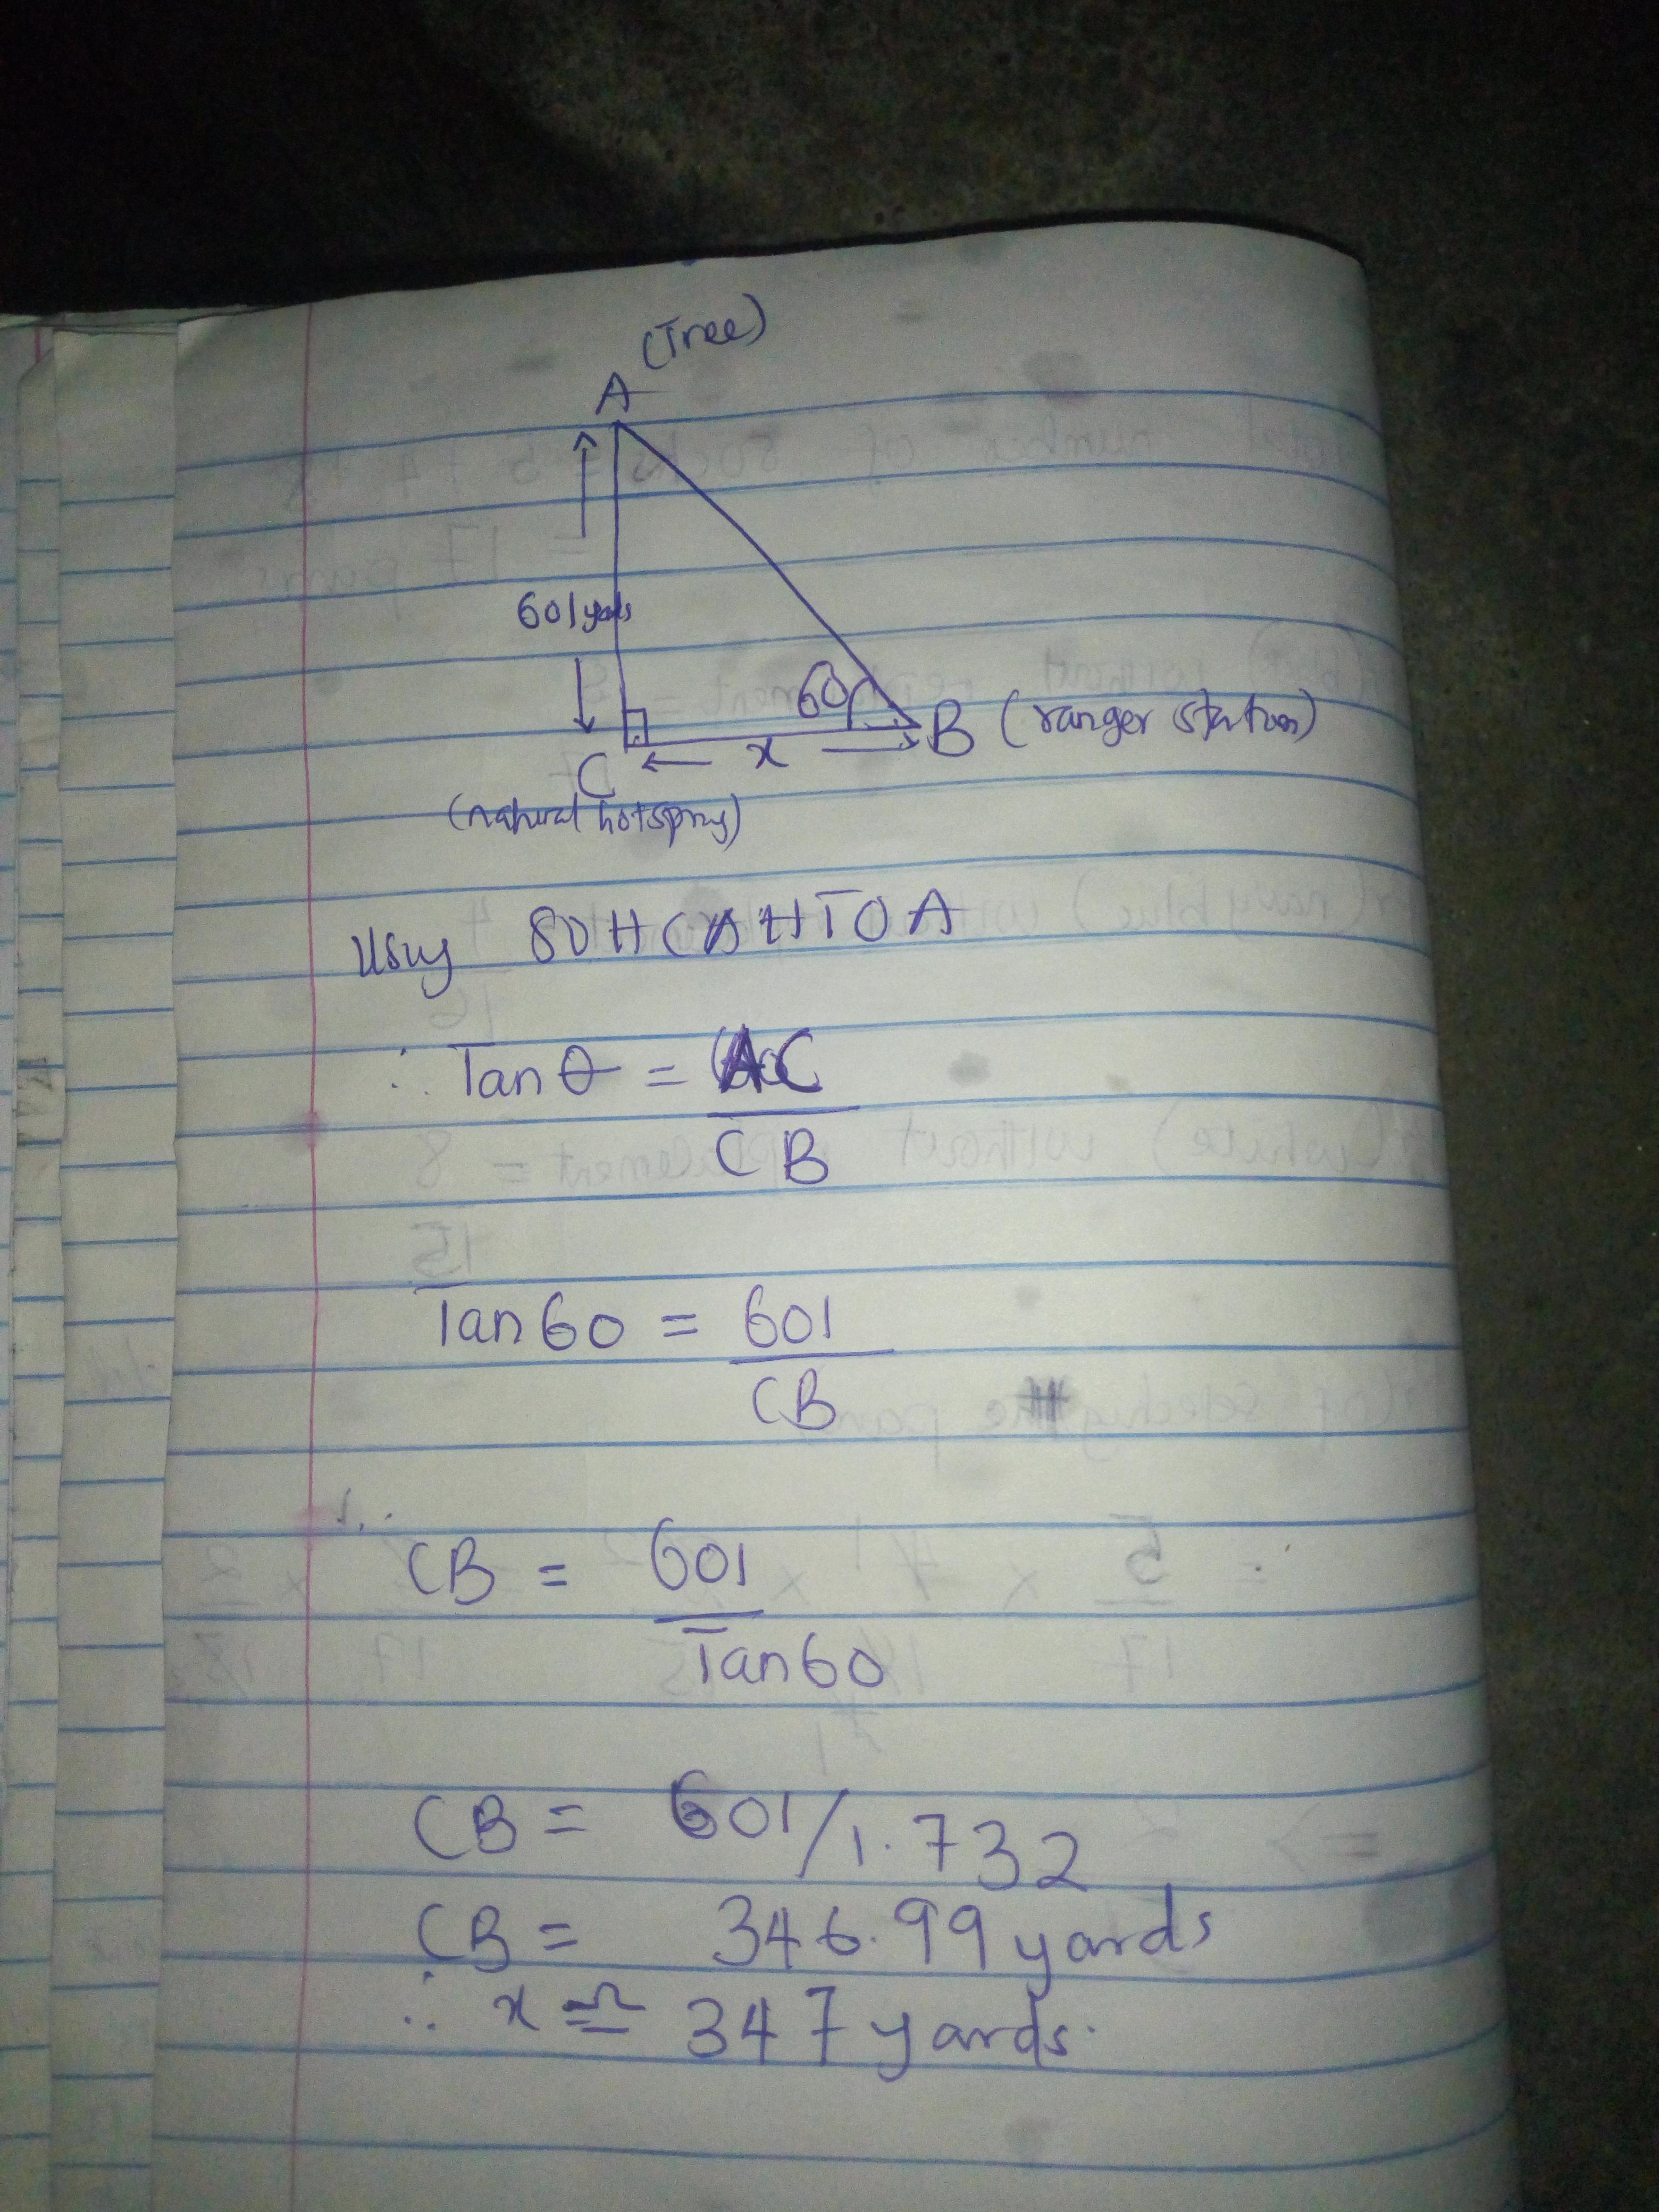 (Tree)
A
601yds
60
B (ranger station)
x
C
(natural hotspring)
Using SOHCAHTOA
∴ Tan θ = AC
CB
Tan 60 = 601
CB
CB = 601
Tan 60
CB = 601/1.732
CB = 346.99 yards
∴ x ≅ 347 yards.